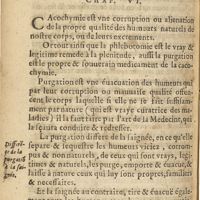 CHAP. VI.
CAcochymie est vne corruption ou alienation
de la propre qualité des humeurs naturels de
nostre corps, ou de leurs excremens.
Or tout ainsi que la phlebotomie est le vray &
legitime remede à la plenitude, aussi la purgation
est le propre & souuerain medicament de la ca-
cochymie.
Purgation est vne euacuation des humeurs qui
par leur corruption ou mauuaise qualité offen-
cent le corps laquelle si elle ne se fait insensiblement
par nature (qui est vraye curatrice des ma-
ladies) il la faut faire par l'art de la Medecine, qui
la sçaura conduire & redresser.
La purgation differe de la saignée, en ce qu'elle
separe & sequestre les humeurs viciez, corrom-
pus & non naturels, de ceux qui sont vrays, legi-
times & naturels, les purge, emporte & euacuë, &
laisse à nature ceux qui luy sont propres, familiers
& necessaires.
Et la saignée au contraire, tire & euacuë égale-
Differē-
ce de la
purgatiō
à la sai-
gnée,